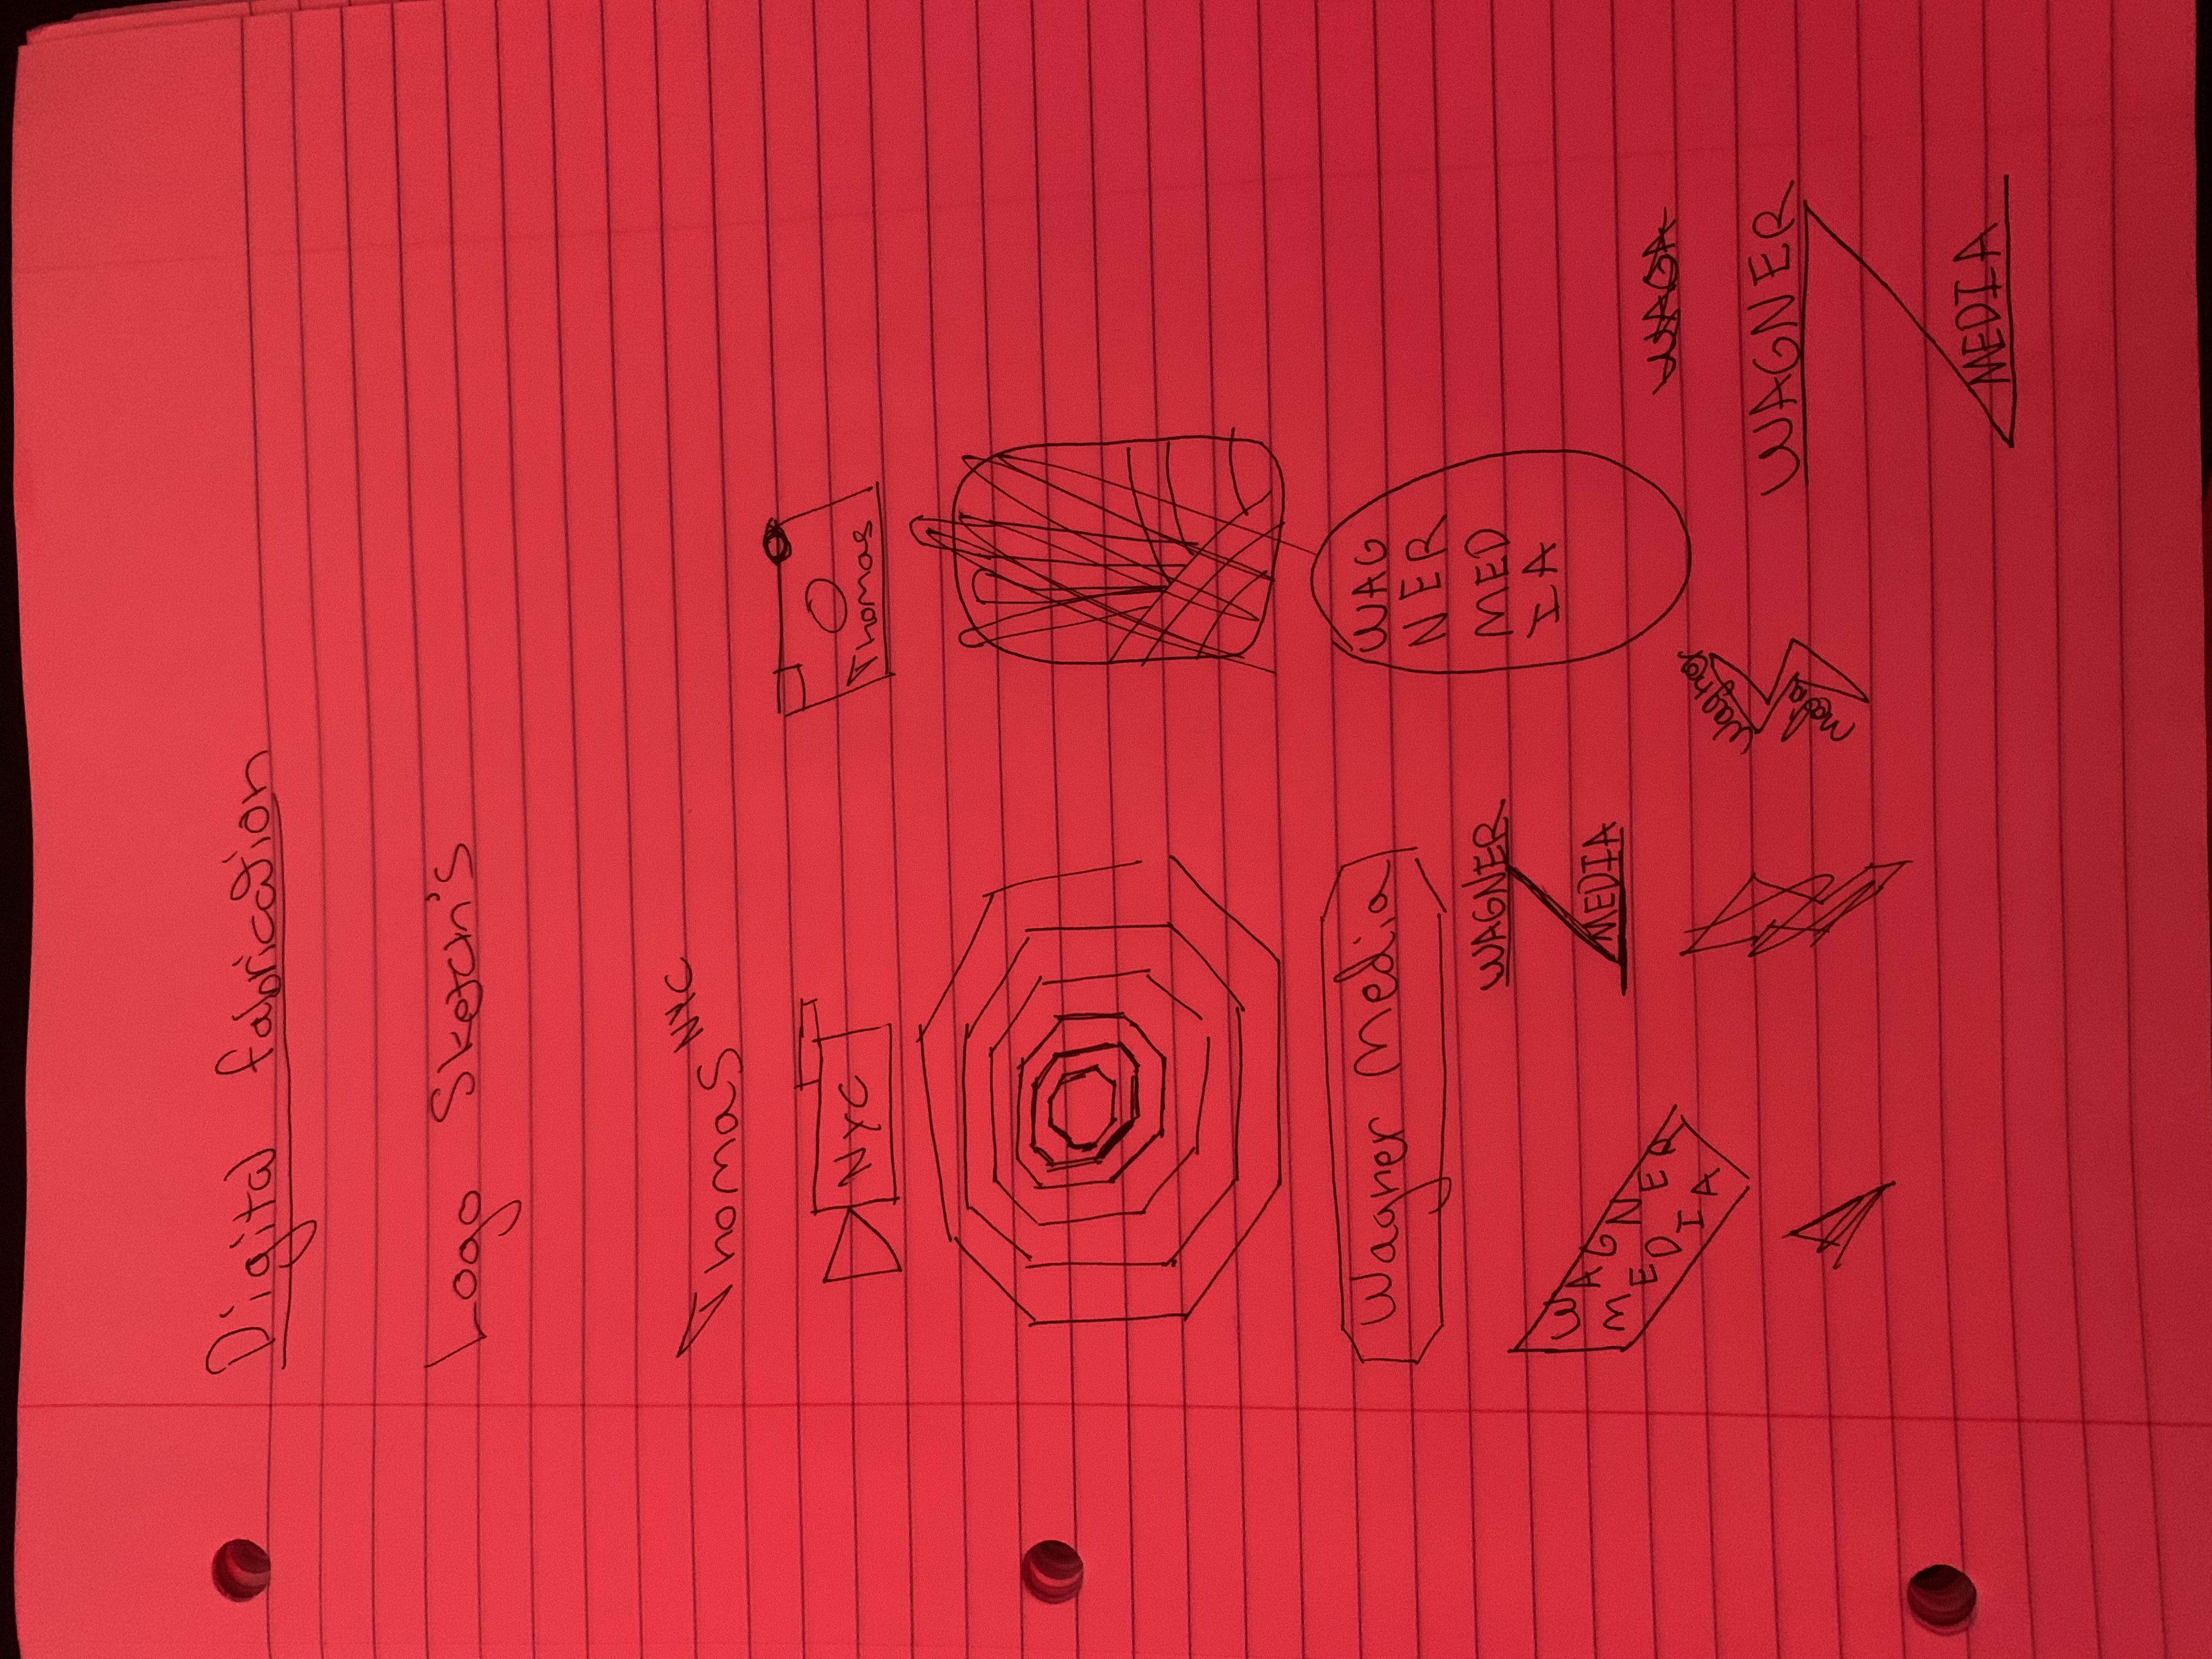 Digital fabrication
Logo Sketch's
Thomas NYC
NYC
Thomas
Wagner Media
WAG
NER
MED
IA
WAGNER
MEDIA
WAGNER
MEDIA
Wagner
Media
WAGNER
MEDIA